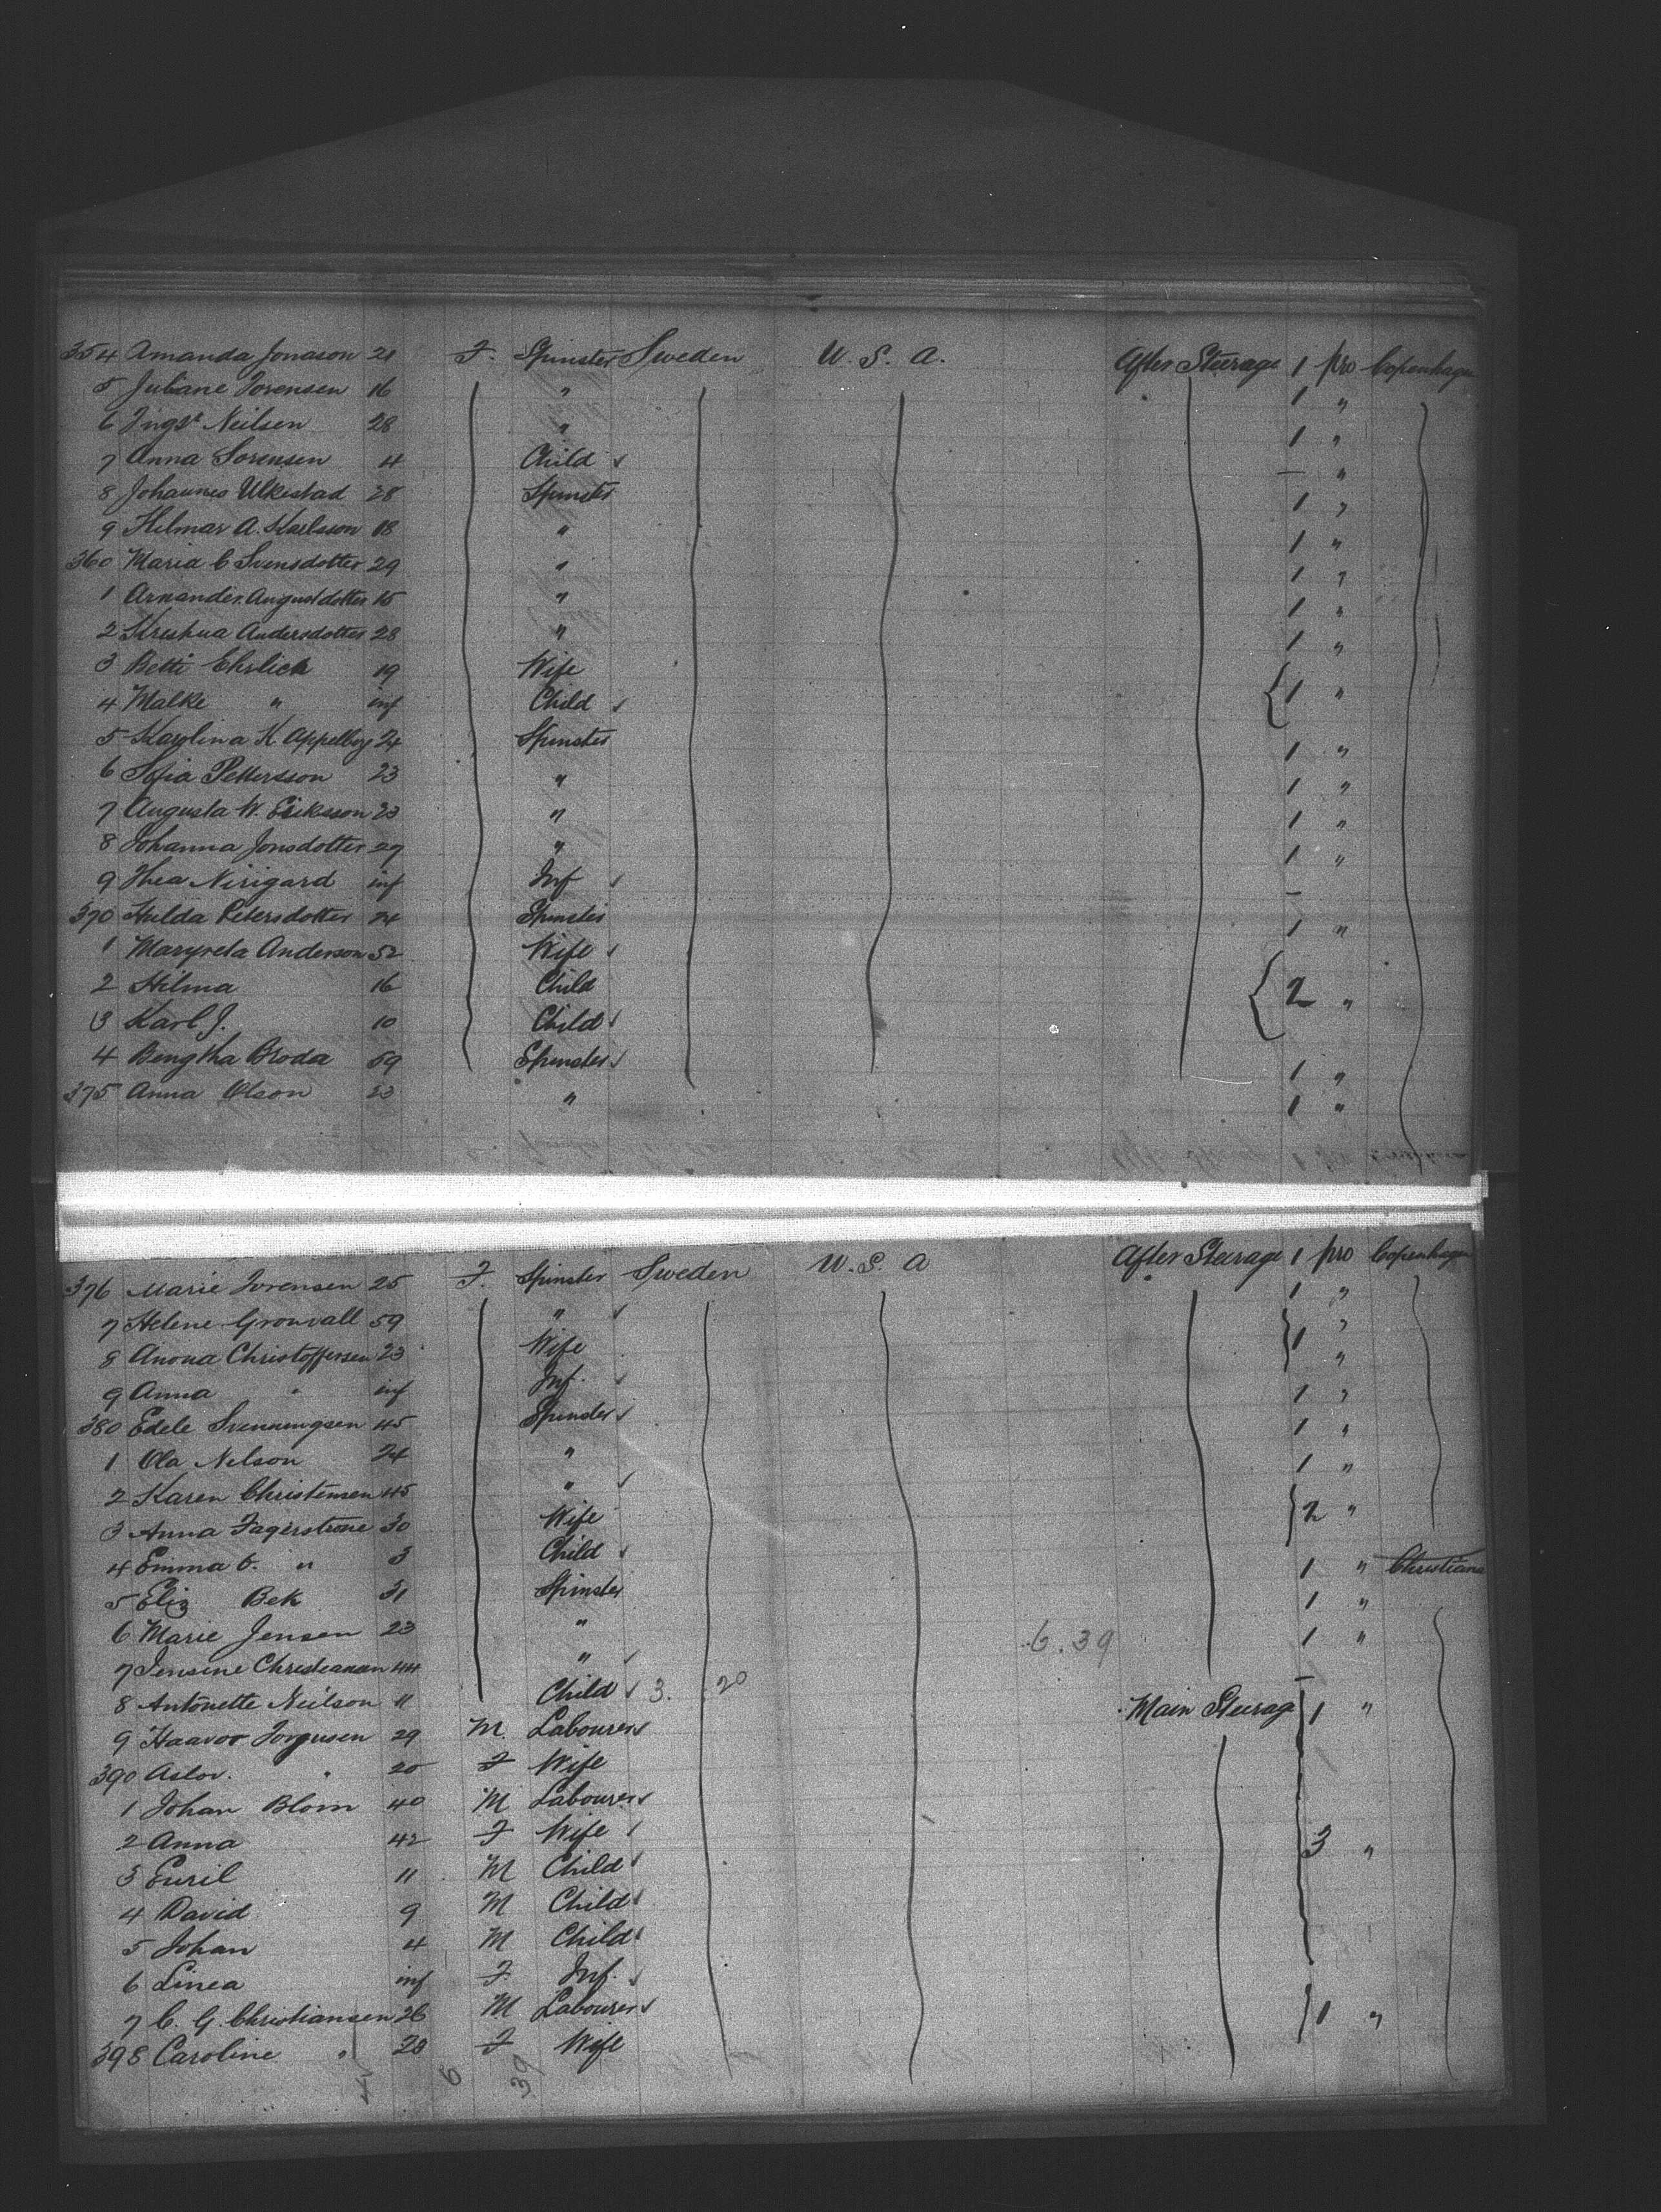 354 Amanda Jonason 21 F. Spinster Sweden U. S. A. After Steerage 1 pro Copenhagen
5 Juliane Sorensen 16 " 1 "
6 Ingr Neilsen 28 " 1 "
7 Anna Sorensen 4 Child ✓ — "
8 Johannes Ulkestad 28 Spinster 1 "
9 Hilmar A. Karlsson 18 " 1 "
360 Maria C Svensdotter 29 " 1 "
1 Arnander. Augustdotter 15 " 1 "
2 Andersdotter 28 " 1 "
3 Betti Ehrlich 19 Wife
4 Malke " inf Child ✓ { 1 "
5 Karolina K. Appelberg 24 Spinster 1 "
6 Sofia Pettersson 23 " 1 "
7 Augusta W. Eriksson 23 " 1 "
8 Johanna Jonsdotter 27 " 1 "
9 Thea Nirigard inf Inf ✓ —
370 Hulda Petersdotter 24 Spinster 1 "
1 Margreta Anderson 52 Wife ✓
2 Hilma 16 Child { 2 "
3 Karl J. 10 Child ✓
4 Bengtha Broda 59 Spinster ✓ 1 "
375 Anna Olson 23 " 1 "
376 Marie Sorensen 25 F. Spinster Sweden U. S. A After Steerage 1 pro Copenhagen
7 Helene Gronvall 59 " ✓ 1 "
8 Anona Christoffersen 23 Wife } 1 "
9 Anna " inf Inf. ✓ "
380 Edele Svenningsen 45 Spinster ✓ 1 "
1 Ola Nelson 24 " 1 "
2 Karen Christensen 45 " ✓ 1 "
3 Anna Fagerstrone 30 Wife } 2 "
4 Emma C. " 3 Child ✓
5 Eliz Bek 31 Spinster 1 " Christiana
6 Marie Jensen 23 " 1 "
7 Jensine Christiansen 44 " ✓ 6.39 1 "
8 Antonette Neilson 11 Child ✓ 3. 20 —
9 Haavor Jorgusen 29 M. Labourer ✓ Main Steerage 1 "
390 Aslov. " 20 F Wife
1 Johan Blom 40 M Labourer ✓
2 Anna 42 F Wife ✓
3 Euril 11 M Child ✓ 3 "
4 David 9 M Child ✓
5 Johan 4 M Child ✓
6 Linea inf F. Inf. ✓
7 C. G. Christiansen 26 M Labourer ✓ } 1 "
398 Caroline " 28 F Wife
6 39